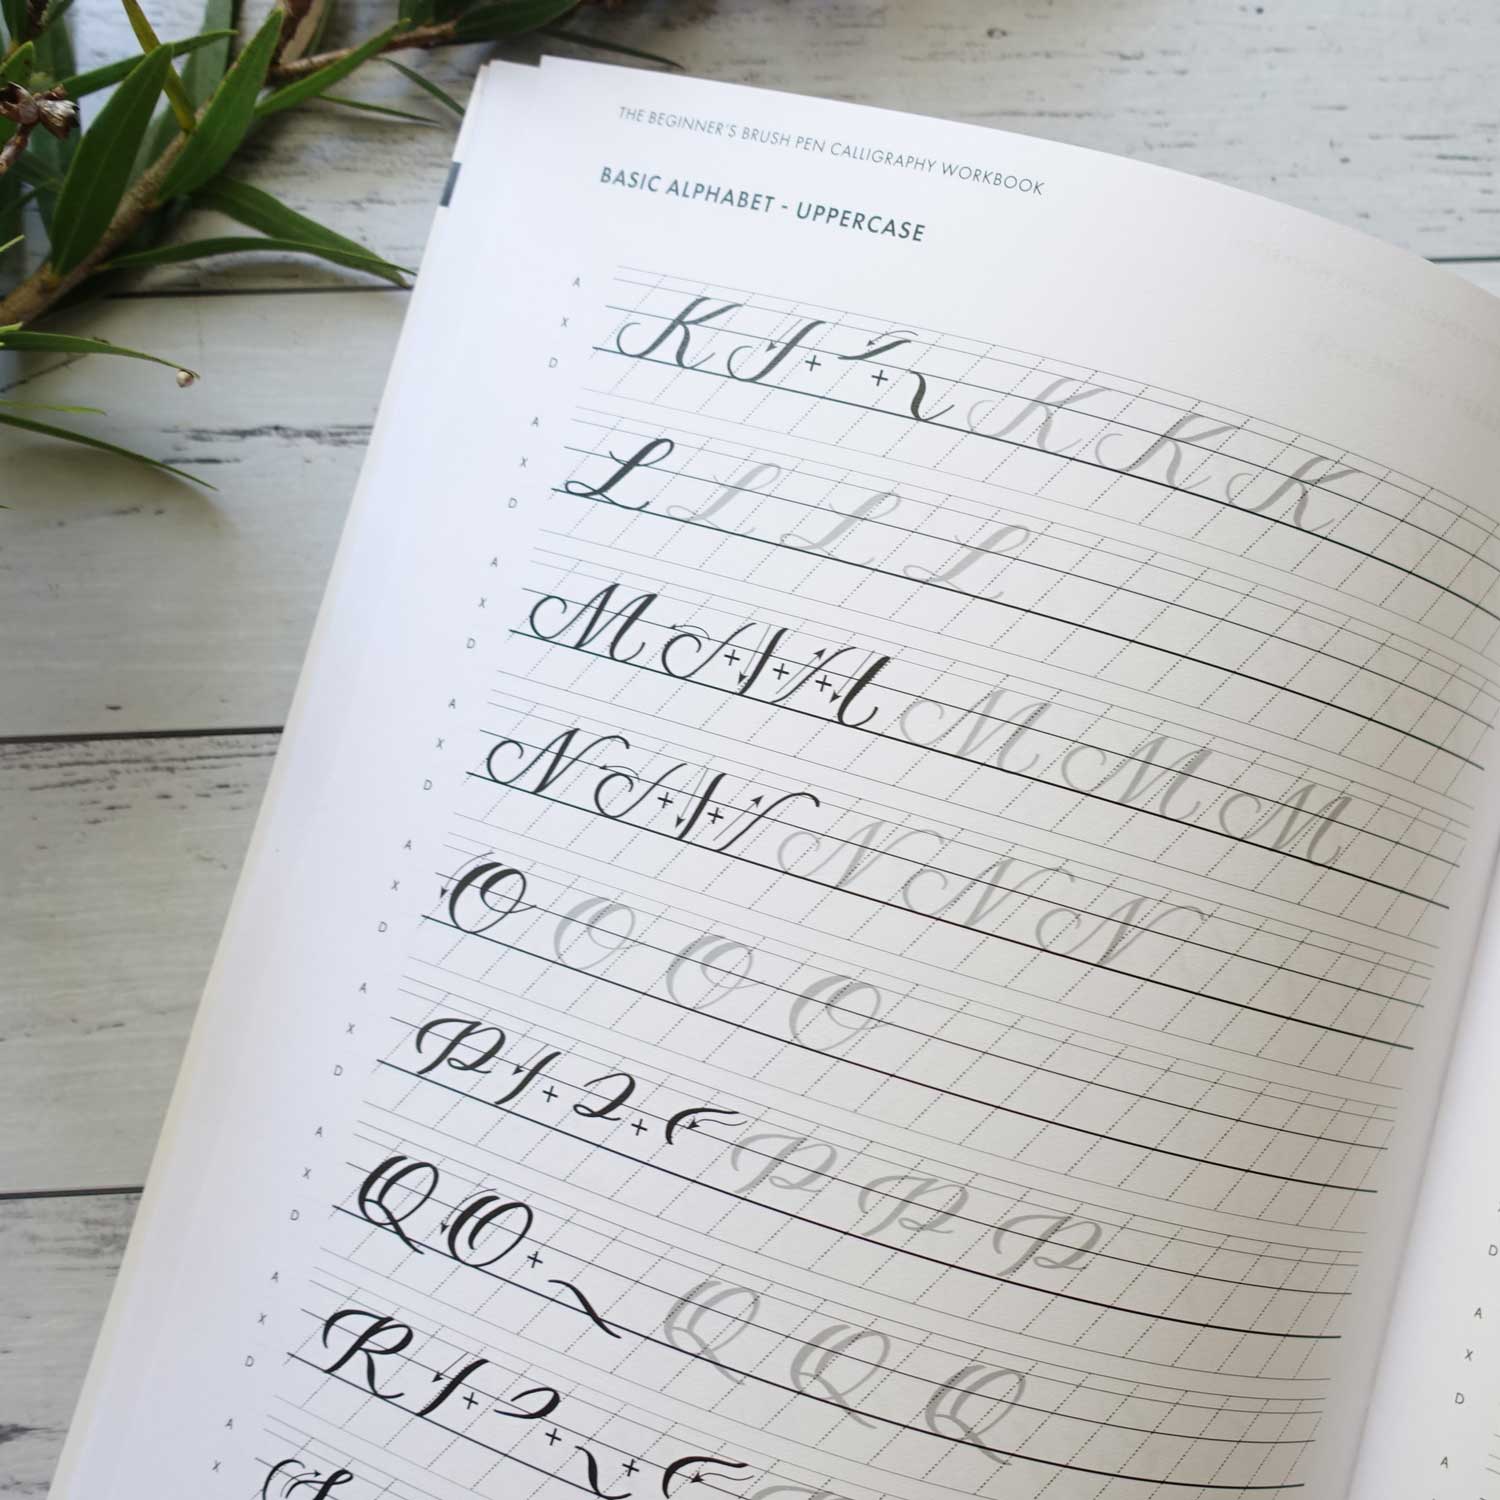 THE BEGINNER'S BRUSH PEN CALLIGRAPHY WORKBOOK
BASIC ALPHABET - UPPERCASE
A
X
D
K + + K K K
A
X
D
L L L L
A
X
D
M + + + M M M
A
X
D
N + + N N N
A
X
D
O O O O
A
X
D
P + + P P P
A
X
D
Q O + Q Q Q
A
X
D
R + + +
A
X
S
D
A
X
D
A